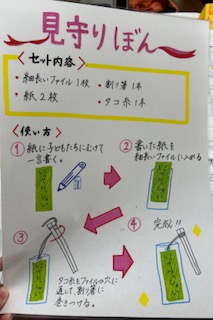 見守りぼん
〈セット内容〉
・細長いファイル1枚 ・割り箸1本
・紙2枚 ・タコ糸1本
〈使い方〉
① 紙に子どもたちにむけて
一言書く。
② 書いた紙を
細長いファイルに入れる
③
タコ糸をファイルの穴に
通して、割り箸に
巻きつける。
④ 完成!!